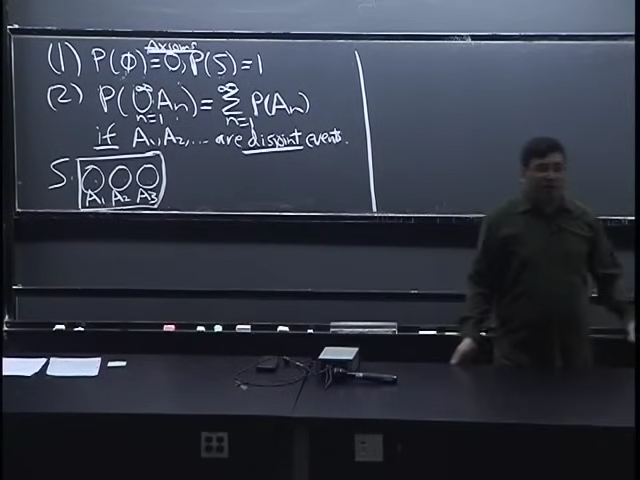 Axioms
(1) P(∅)=0, P(S)=1
(2) P(⋃_{n=1}^∞ A_n) = Σ_{n=1}^∞ P(A_n)
if A₁, A₂, ... are disjoint events.
S
A₁ A₂ A₃